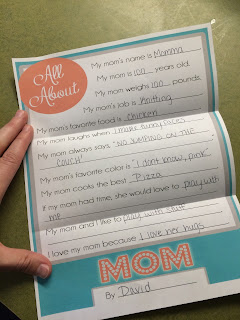 All
About
My mom's name is Momma
My mom is 100 years old.
My mom weighs 100 pounds.
My mom's job is knitting
My mom's favorite food is chicken
My mom laughs when I make funny faces
My mom always says "NO JUMPING ON THE
COUCH"
My mom's favorite color is "I don't know, pink"
My mom cooks the best Pizza
If my mom had time, she would love to play with
me
My mom and I like to play with stuff
I love my mom because I love her hugs
MOM
By David